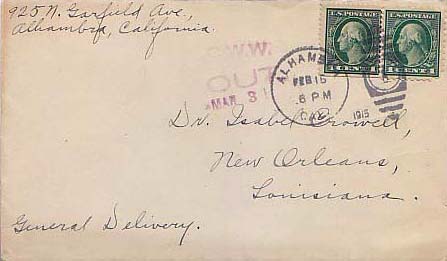 925 N. Garfield Ave.,
Alhambra, California.
U.S. POSTAGE
1 CENT 1
U.S. POSTAGE
1 CENT 1
O.W.W.
OUT
MAR 31
ALHAMB
FEB 15
6 PM
CAL
1915
Dr. Isabel Crowell,
New Orleans,
Louisiana.
General Delivery.